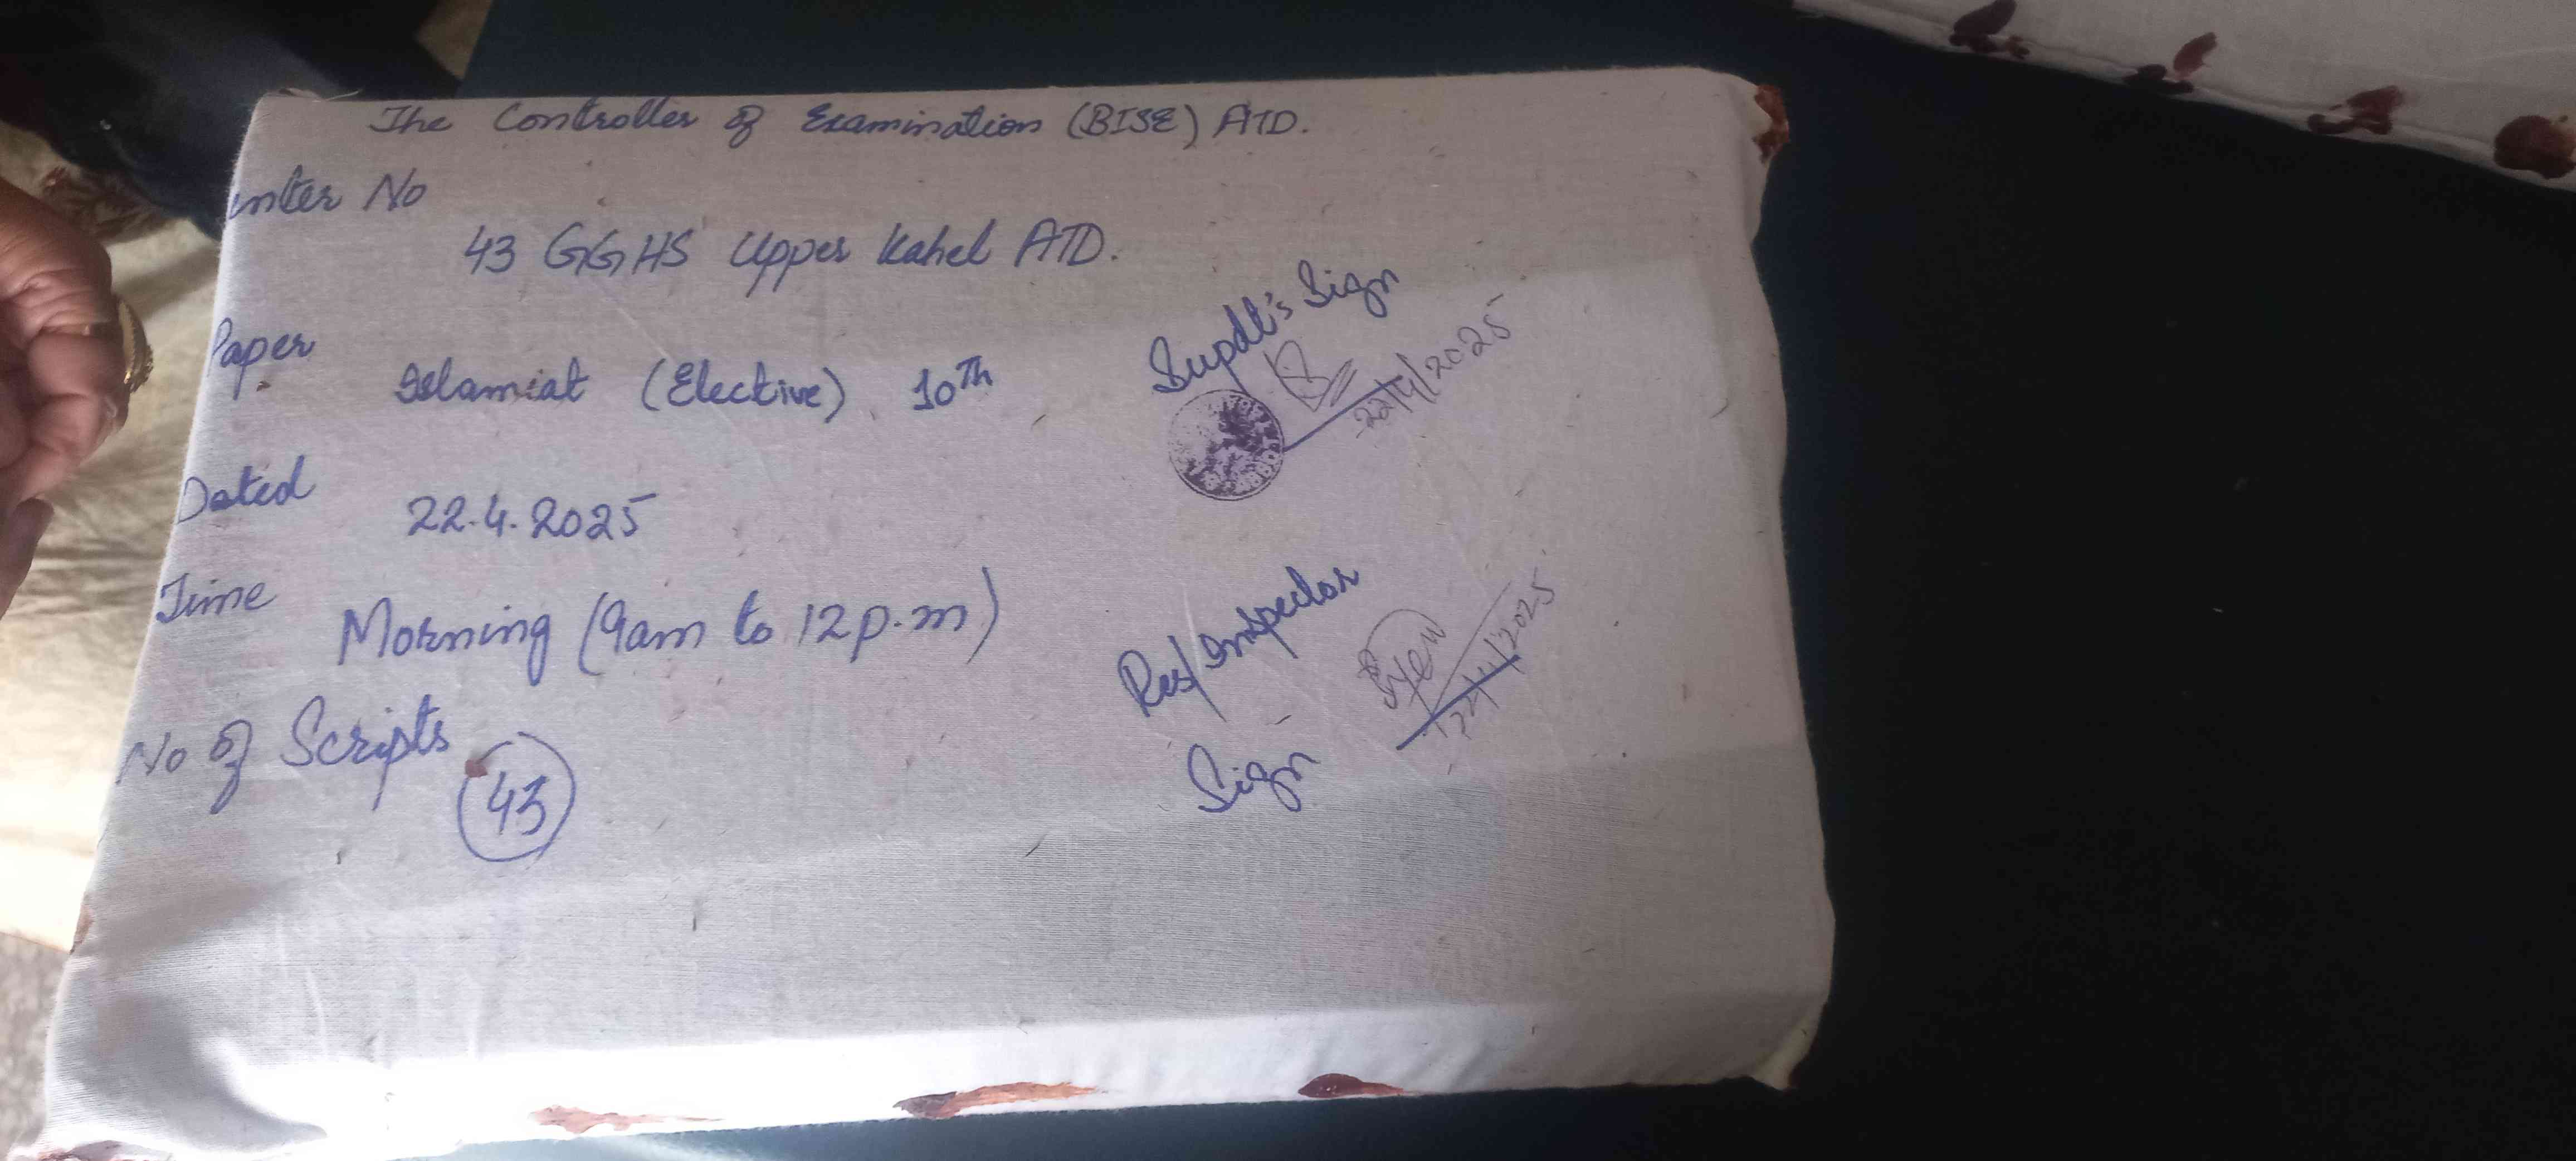 The Controller of Examination (BISE) ATD.
enter No
43 GGHS Upper Kahel ATD.
Paper
Islamiat (Elective) 10th
Dated
22.4.2025
Time
Morning (9am to 12 p.m)
No of Scripts
43
Supdt's Sign
22/4/2025
Res/Inspector
Sign
22/4/2025